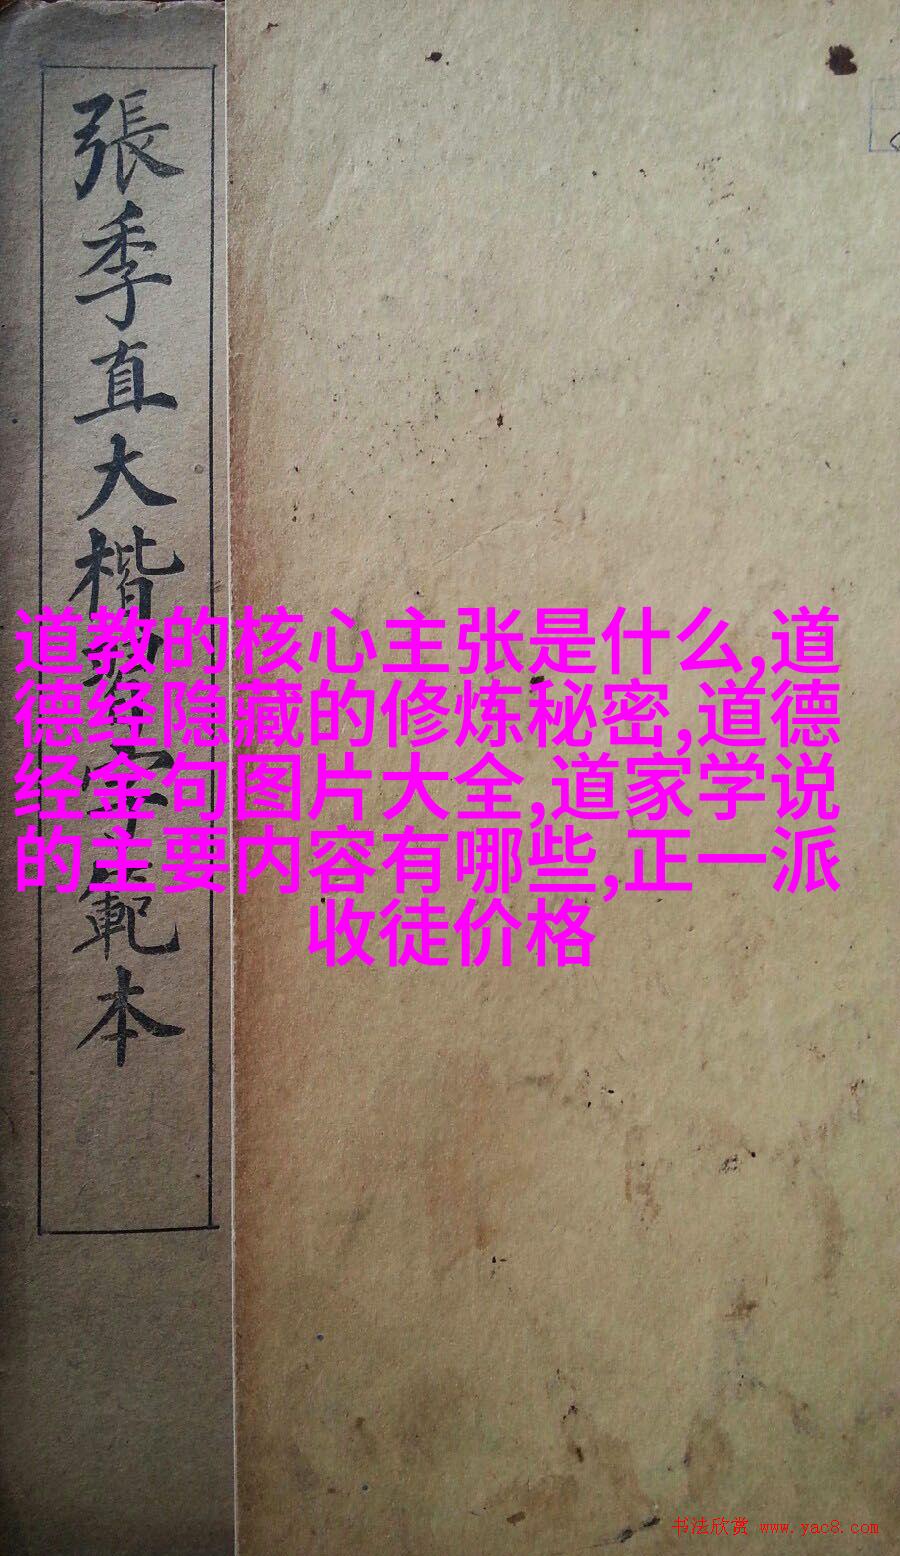 張季直大楷習字範本
道教的核心主张是什么,道
德经隐藏的修炼秘密,道德
经金句图片大全,道家学说
的主要内容有哪些,正一派
收徒价格
书法欣赏 www.yac8.com